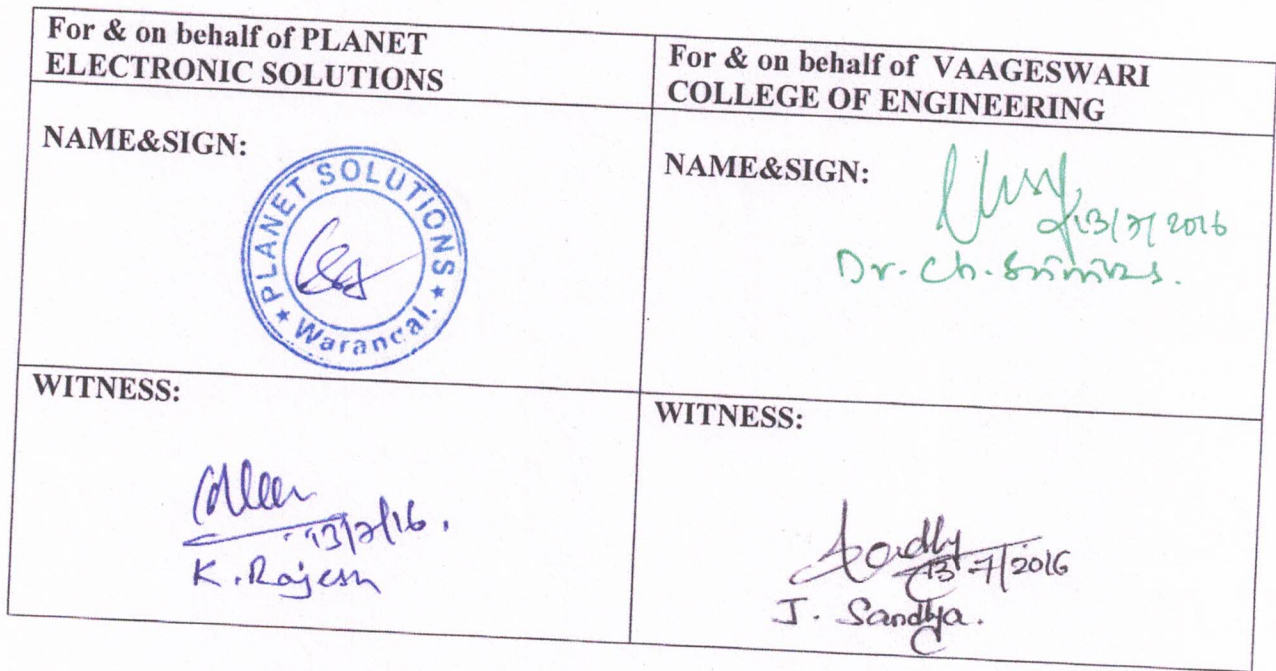 For & on behalf of PLANET
ELECTRONIC SOLUTIONS
For & on behalf of VAAGESWARI
COLLEGE OF ENGINEERING
NAME&SIGN:
PLANET SOLUTIONS
★ Warangal. ★
NAME&SIGN:
13/7/2016
Dr. Ch. Srinivas.
WITNESS:
13/7/16.
K. Rajesh
WITNESS:
Sandhy
13-7/2016
J. Sandhya.